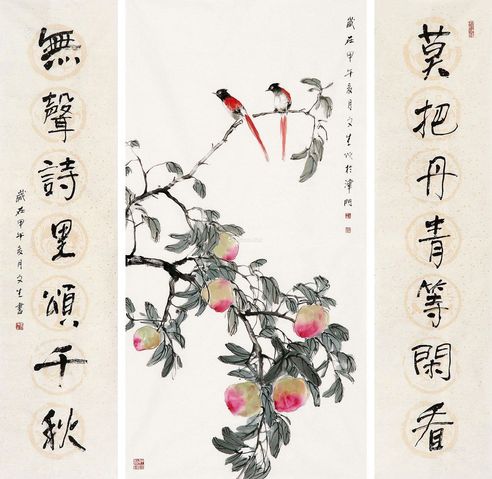 莫把丹青等閑看
歲在甲午夏月文生於津門
無聲詩里頌千秋
歲在甲午夏月文生書